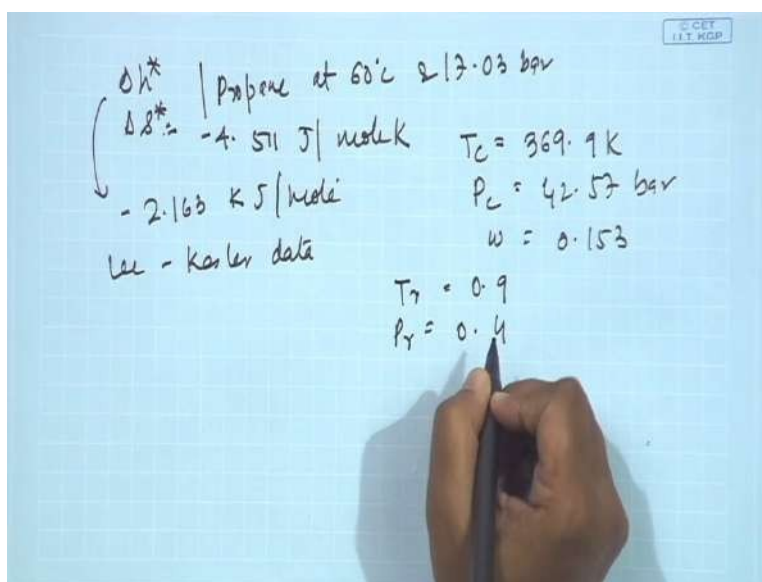 © CET
I.I.T. KGP
Δh* | Propane at 60°c & 17.03 bar
Δs* :- -4.511 J/mole K
- 2.163 KJ/mole
Lee - Kesler data
Tc = 369.9 K
Pc = 42.57 bar
w = 0.153
Tr = 0.9
Pr = 0.4